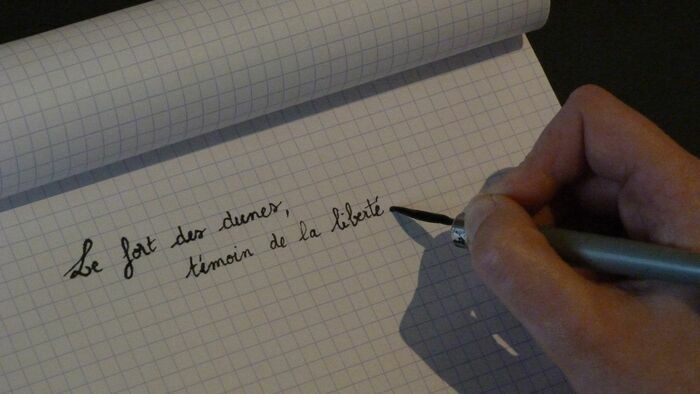 Le fort des dunes,
témoin de la liberté